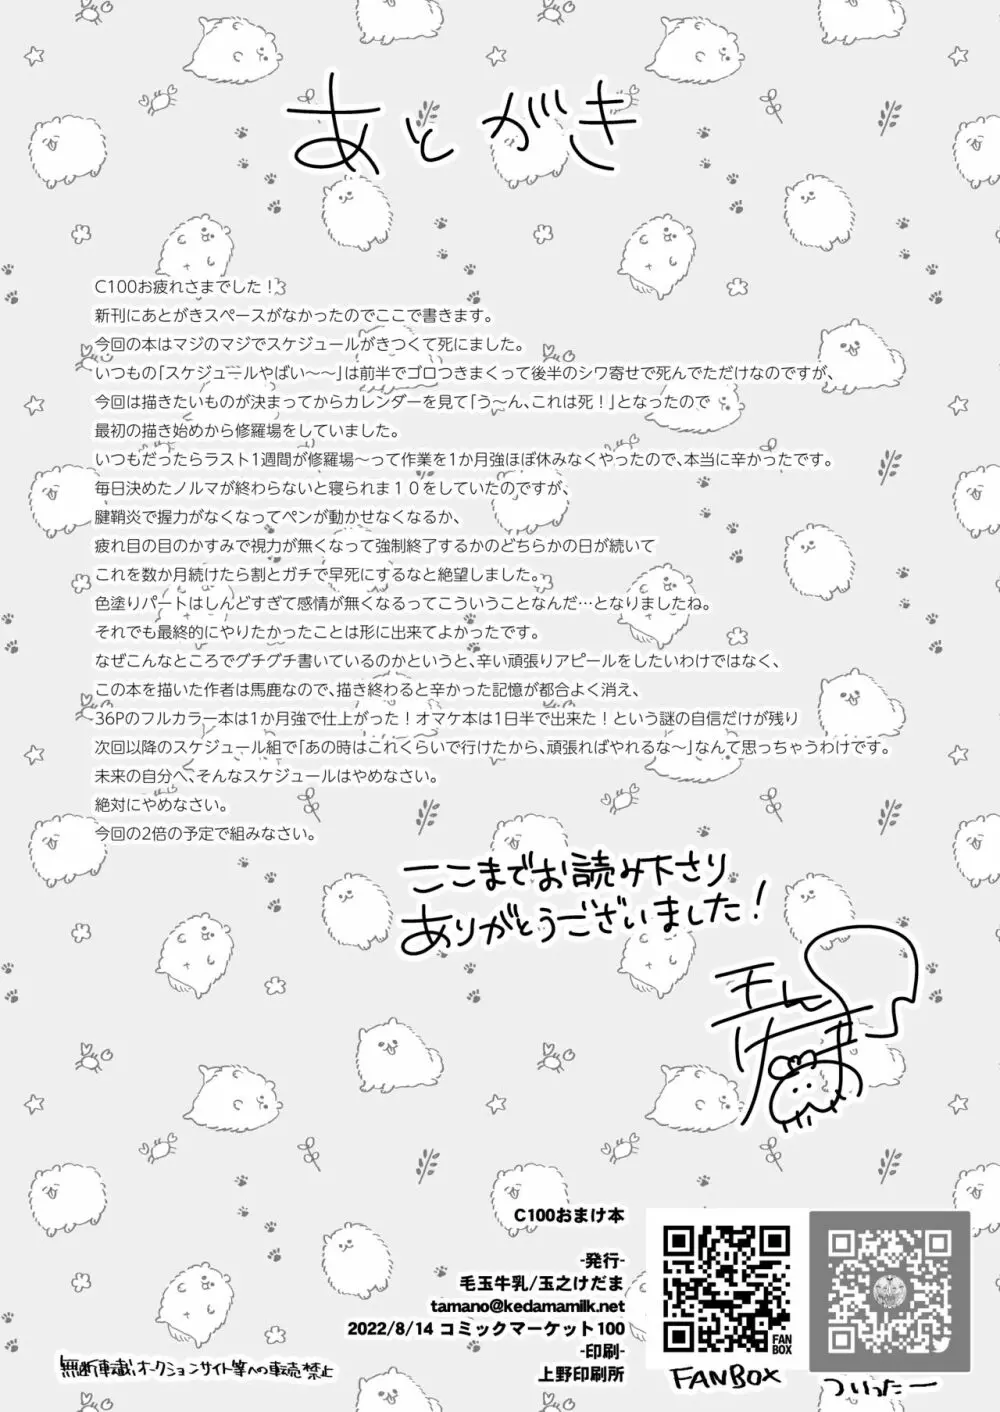 あとがき
C100お疲れさまでした！
新刊にあとがきスペースがなかったのでここで書きます。
今回の本はマジのマジでスケジュールがきつくて死にました。
いつもの「スケジュールやばい〜〜」は前半でゴロつきまくって後半のシワ寄せで死んでただけなのですが、
今回は描きたいものが決まってからカレンダーを見て「う〜ん、これは死！」となったので
最初の描き始めから修羅場をしていました。
いつもだったらラスト1週間が修羅場〜って作業を1か月強ほぼ休みなくやったので、本当に辛かったです。
毎日決めたノルマが終わらないと寝られま１０をしていたのですが、
腱鞘炎で握力がなくなってペンが動かせなくなるか、
疲れ目の目のかすみで視力が無くなって強制終了するかのどちらかの日が続いて
これを数か月続けたら割とガチで早死にするなと絶望しました。
色塗りパートはしんどすぎて感情が無くなるってこういうことなんだ…となりましたね。
それでも最終的にやりたかったことは形に出来てよかったです。
なぜこんなところでグチグチ書いているのかというと、辛い頑張りアピールをしたいわけではなく、
この本を描いた作者は馬鹿なので、描き終わると辛かった記憶が都合よく消え、
36Pのフルカラー本は1か月強で仕上がった！オマケ本は1日半で出来た！という謎の自信だけが残り
次回以降のスケジュール組で「あの時はこれくらいで行けたから、頑張ればやれるな〜」なんて思っちゃうわけです。
未来の自分へ、そんなスケジュールはやめなさい。
絶対にやめなさい。
今回の2倍の予定で組みなさい。
ここまでお読み下さり
ありがとうございました！
C100おまけ本
-発行-
毛玉牛乳/玉之けだま
tamano@kedamamilk.net
2022/8/14 コミックマーケット100
-印刷-
上野印刷所
FAN
BOX
FANBOX
ついったー
無断転載、オークションサイト等への転売禁止